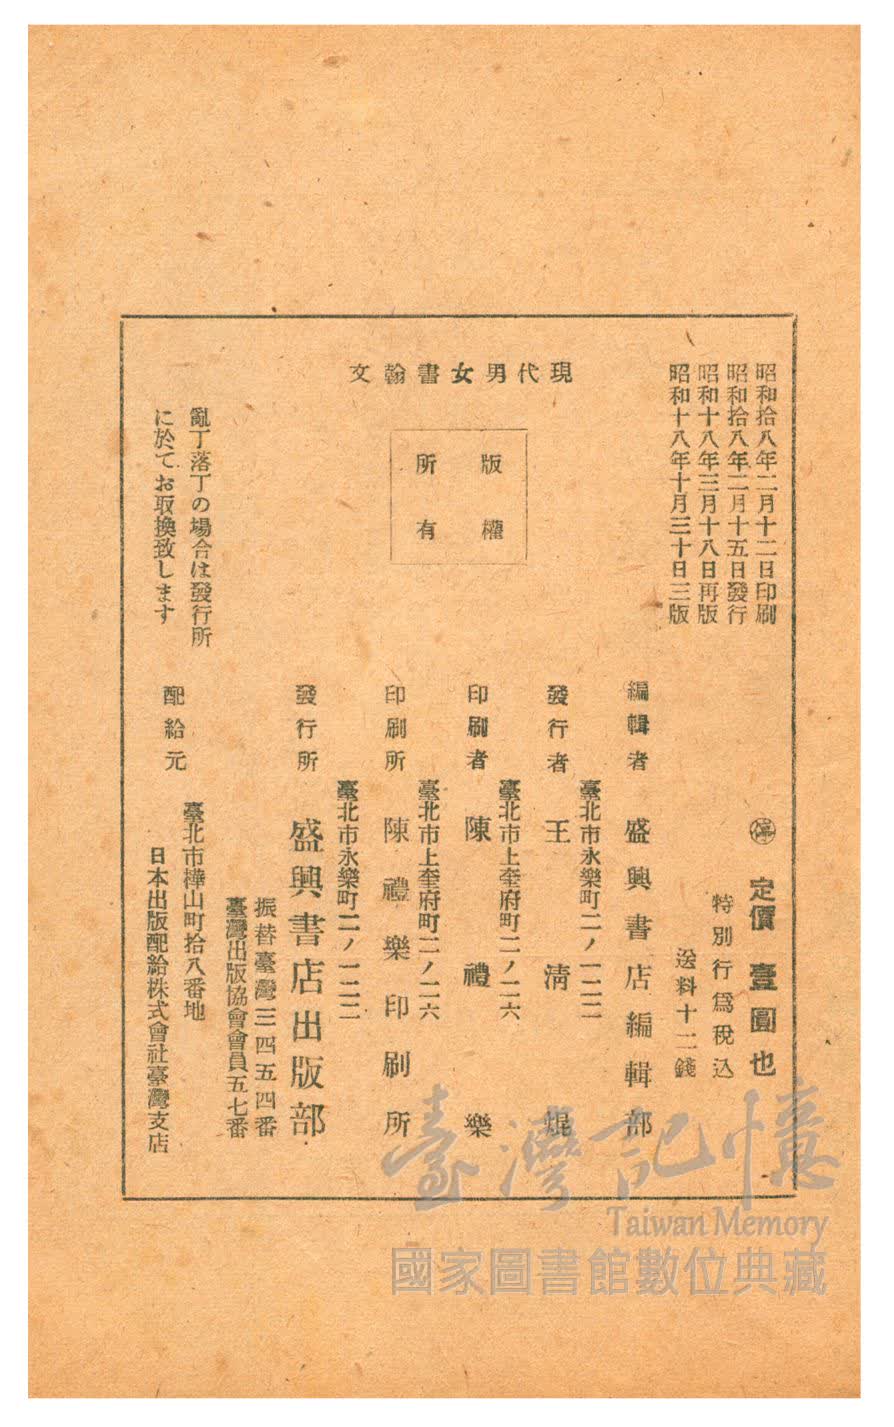 昭和拾八年二月十二日印刷
昭和拾八年二月十五日發行
昭和十八年三月十八日再版
昭和十八年十月三十日三版
現代男女書翰文
版權
所有
亂丁落丁の場合は發行所
に於てお取換致します
停
定價 壹圓也
特別行爲稅込
送料十二錢
編輯者 盛興書店編輯部
臺北市永樂町二ノ一二二
發行者 王清焜
臺北市上奎府町二ノ二六
印刷者 陳禮樂
臺北市上奎府町二ノ二六
印刷所 陳禮樂印刷所
臺北市永樂町二ノ一二二
發行所 盛興書店出版部
振替臺灣三四五四番
臺灣出版協會會員五七番
臺北市樺山町拾八番地
配給元 日本出版配給株式會社臺灣支店
臺灣記憶
Taiwan Memory
國家圖書館數位典藏